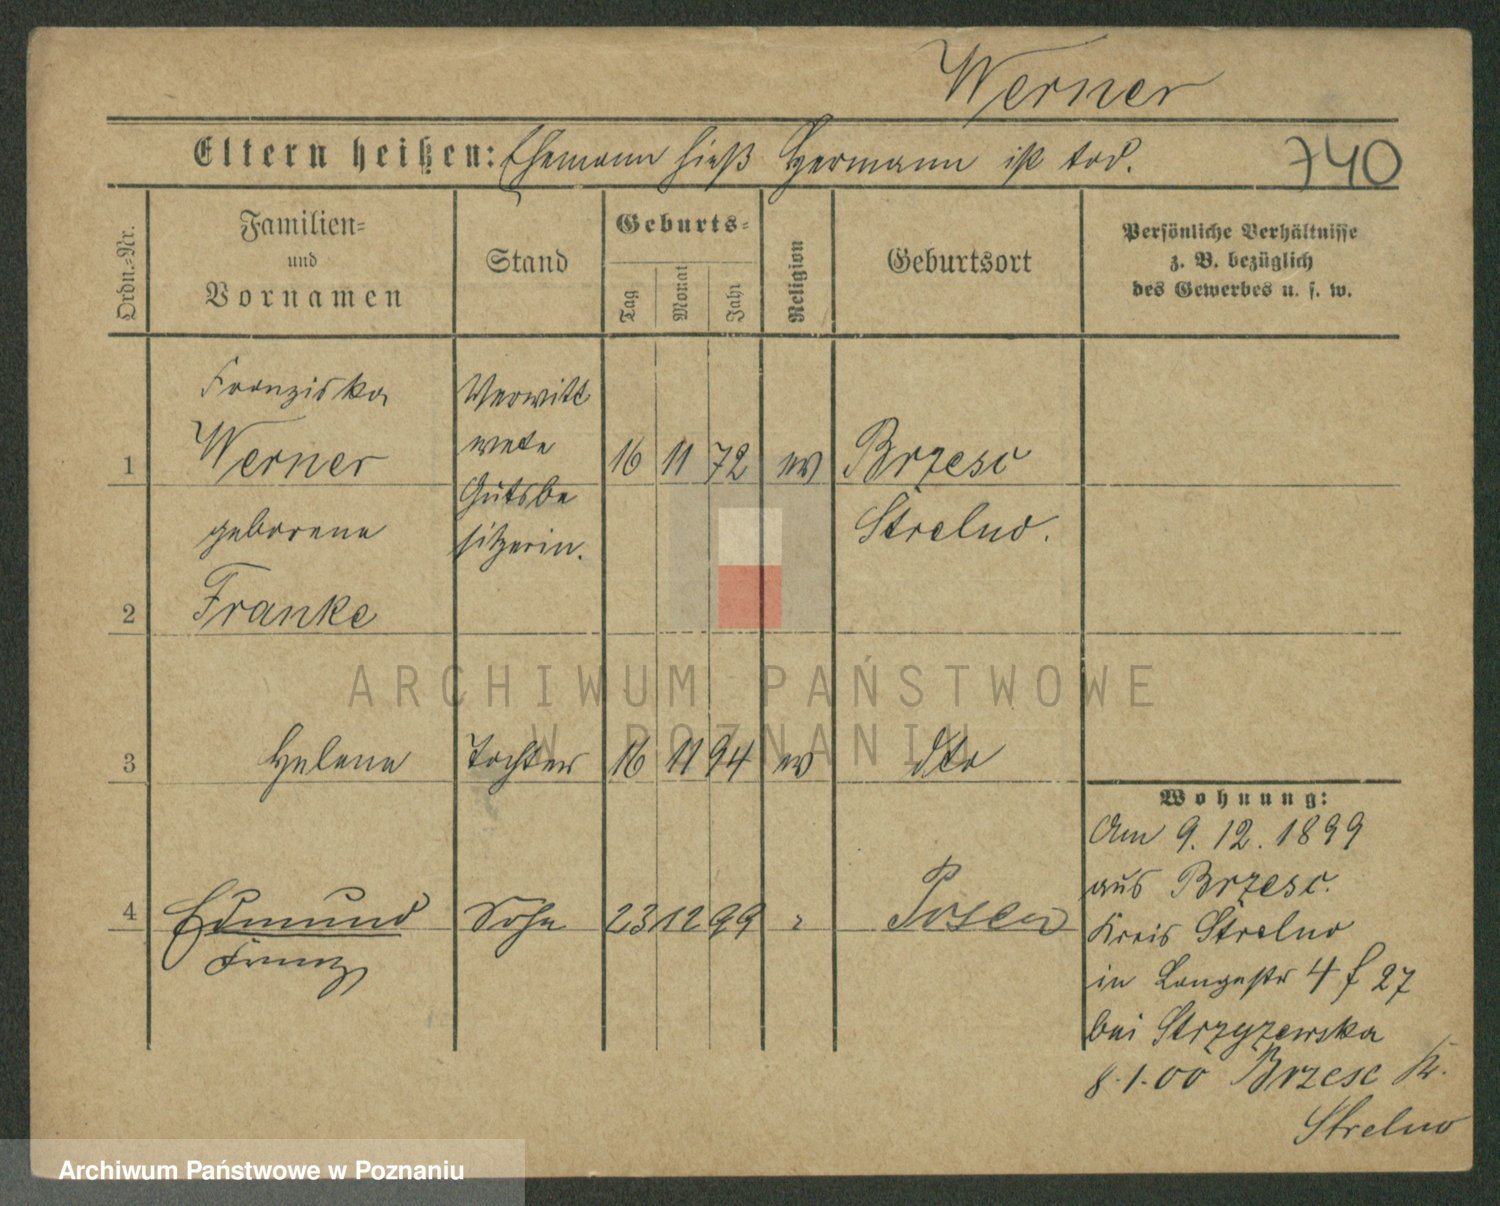 Werner
Eltern heißen: Ehemann hieß Hermann ist tod.
740
Ordn.-Nr.
Familien- und Vornamen
Stand
Geburts-
Tag
Monat
Jahr
Religion
Geburtsort
Persönliche Verhältnisse
z. B. bezüglich
des Gewerbes u. s. w.
Franziska
Verwitt
1 Werner
wete
16 11 72 ev Brzesc
Gutsbe
geborene
sitzerin.
Strelno.
2 Franke
ARCHIWUM PAŃSTWOWE
W POZNANIU
3 Helene Tochter 16 11 94 ev dto
Wohnung:
Am 9. 12. 1899
aus Brzesc.
4 Edmund Sohn 23 12 99 " Posen
Franz
Kreis Strelno
in Langestr 4 f 27
bei Strzyzewska
8.1.00 Brzesc Kr.
Strelno
Archiwum Państwowe w Poznaniu